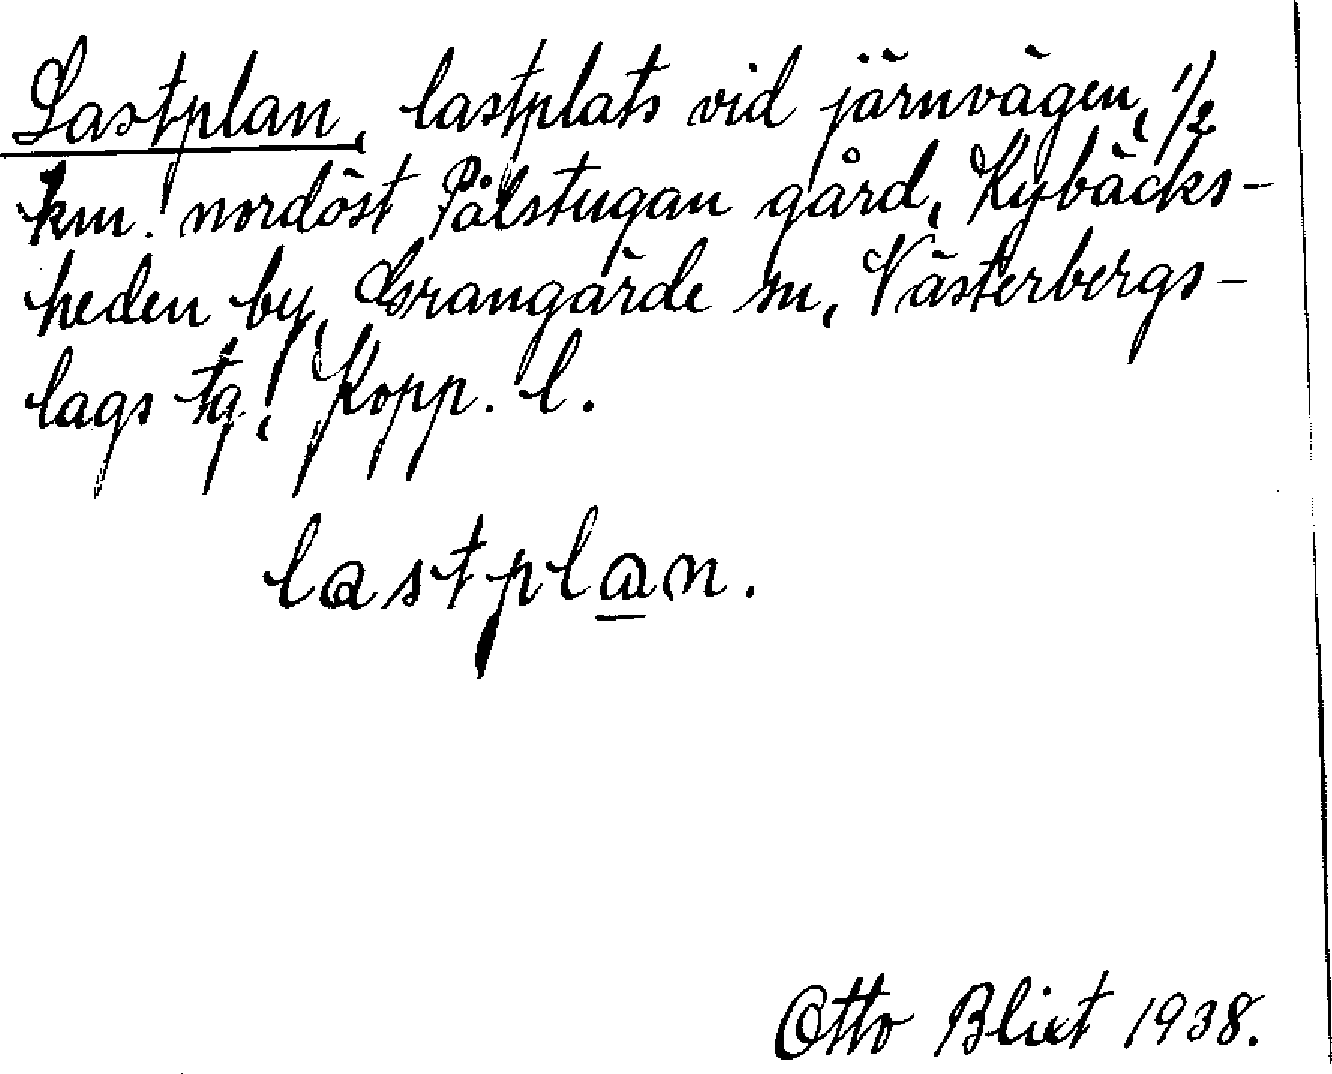 Lastplan, lastplats vid järnvägen, 1/2
km. nordöst Pålstugan gård, Kybäcks-
heden by, Grangärde sn, Västerbergs-
lags tg, Kopp. l.
lastplan.
Otto Blixt 1938.